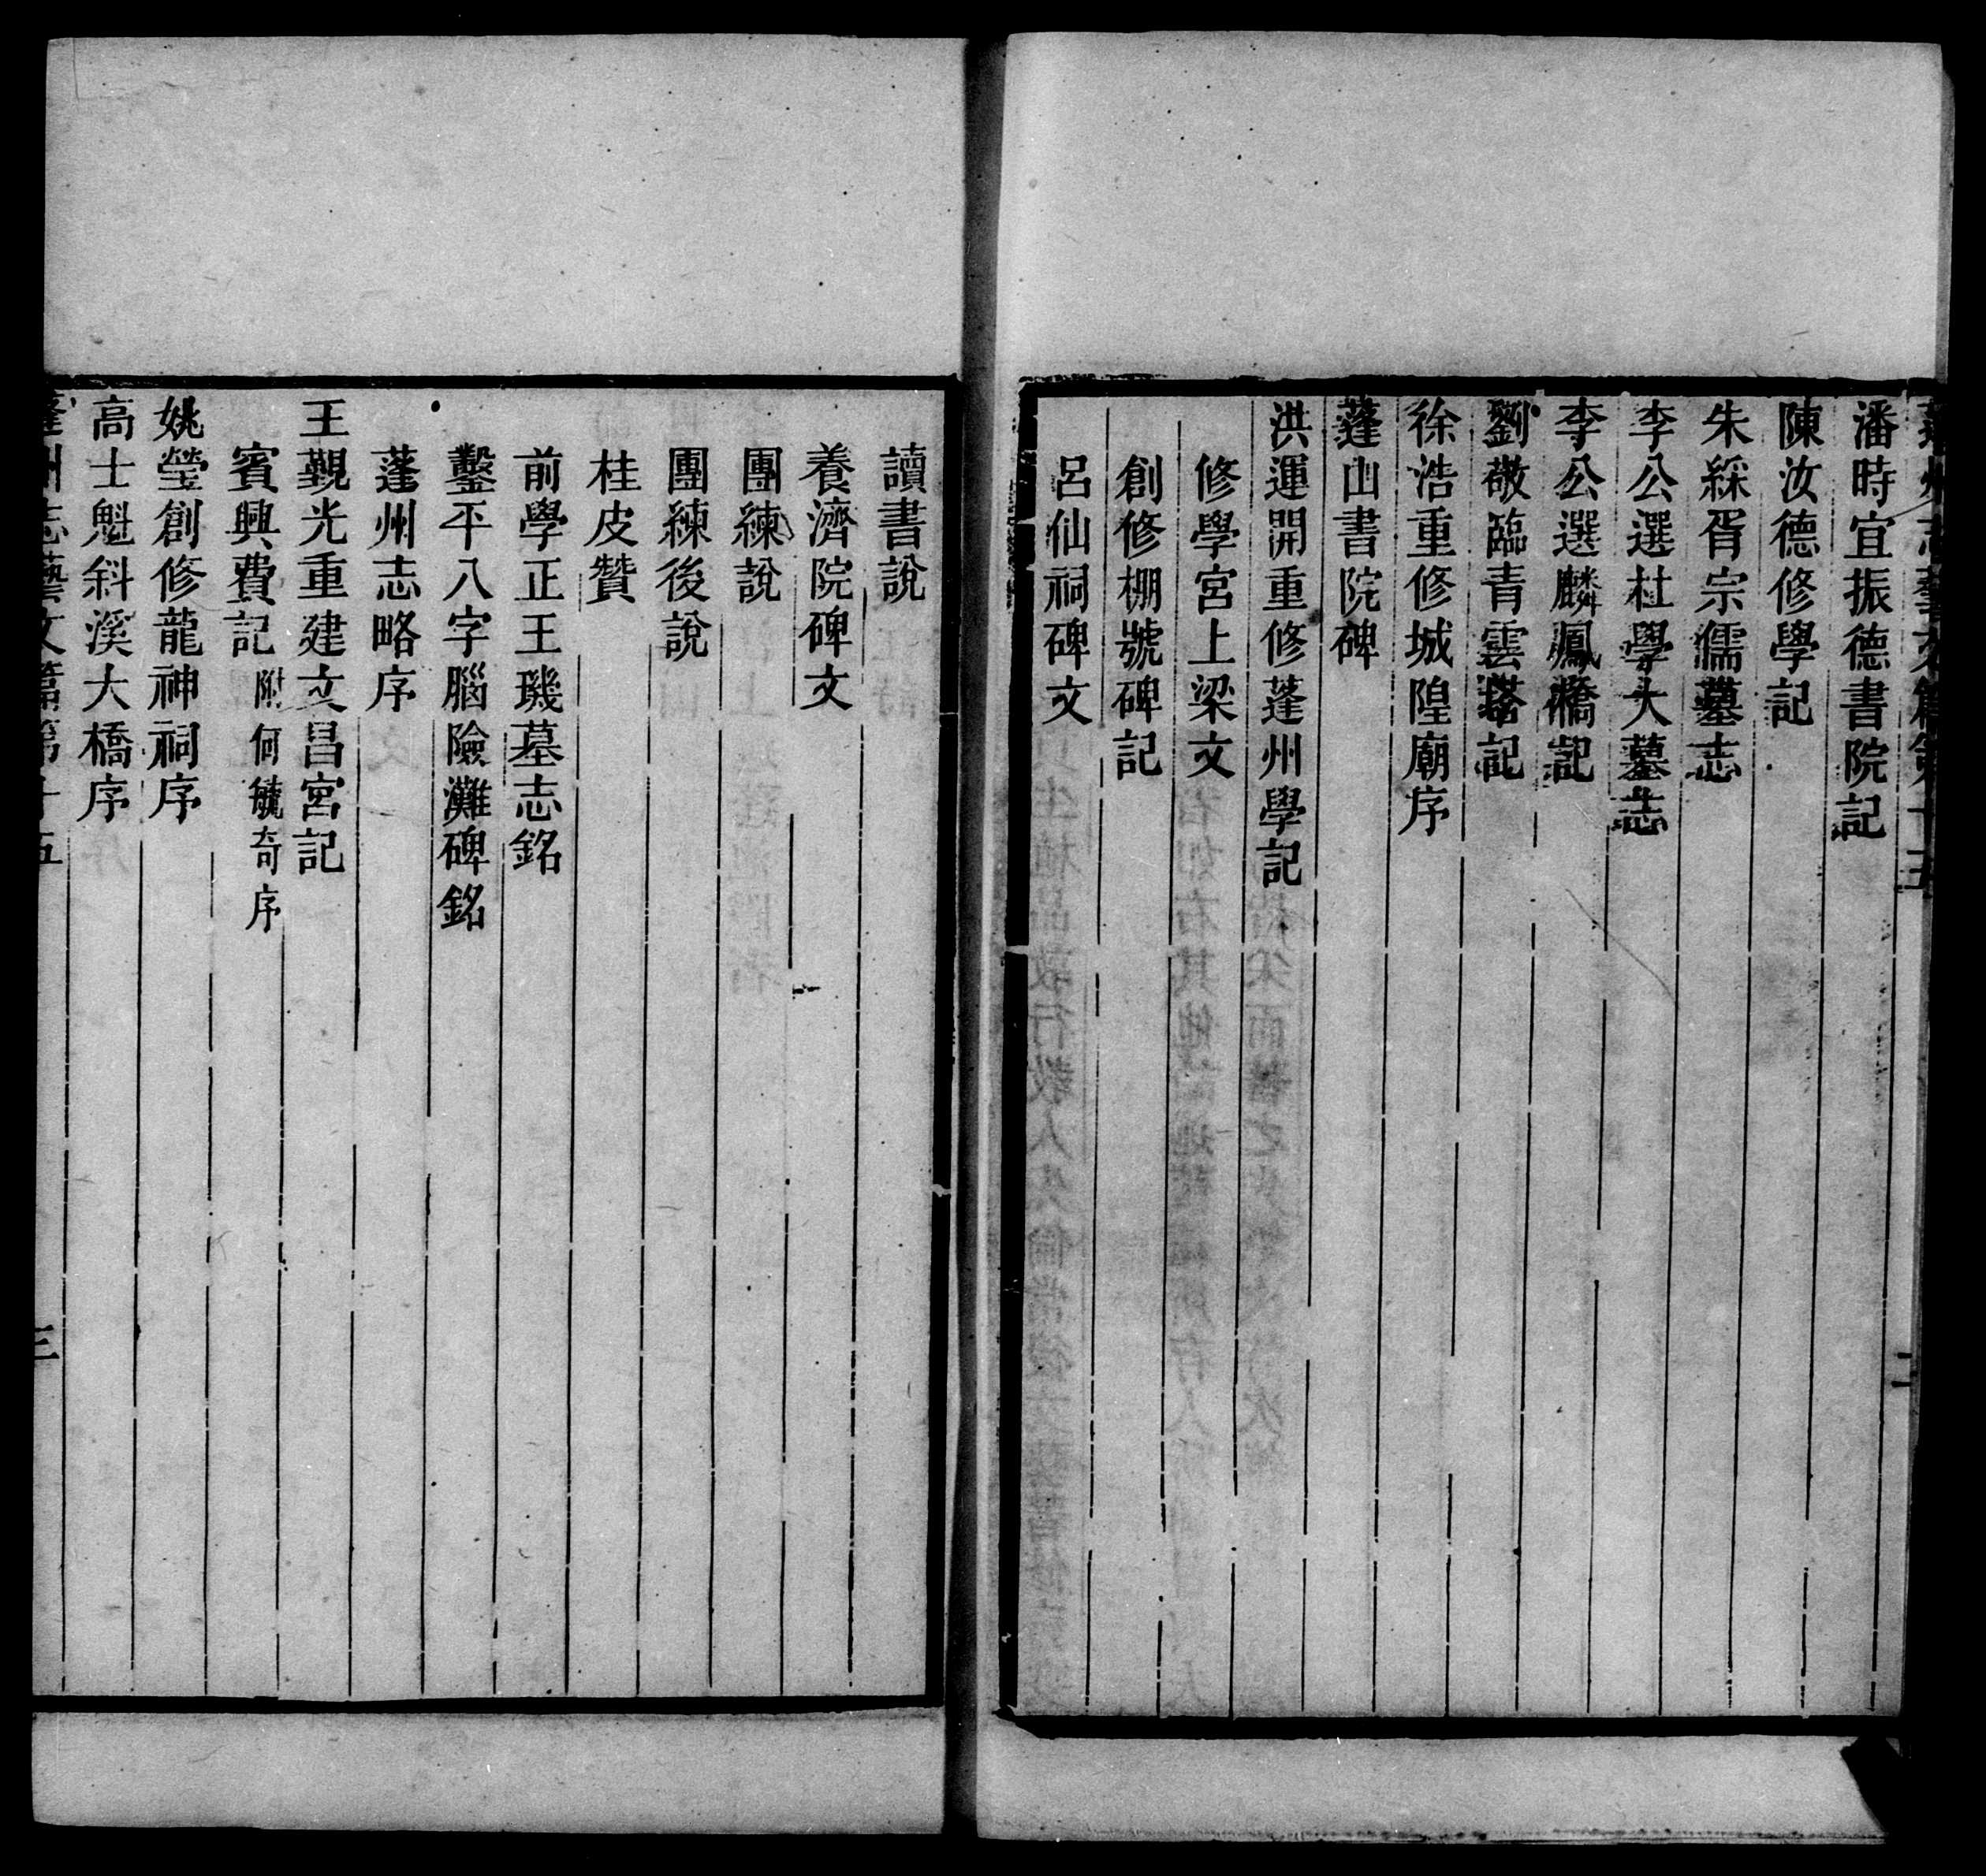 蓬州志藝文篇第十五
二
潘時宜振德書院記
陳汝德修學記
朱綵胥宗儒墓志
李公選杜學大墓志
李公選麟鳳橋記
劉敬臨青雲塔記
徐浩重修城隍廟序
蓬山書院碑
洪運開重修蓬州學記
修學宮上梁文
創修棚號碑記
呂仙祠碑文
讀書說
養濟院碑文
團練說
團練後說
桂皮贊
前學正王璣墓志銘
鑿平八字腦險灘碑銘
蓬州志略序
王覲光重建文昌宮記
賓興費記 附何毓奇序
姚瑩創修龍神祠序
高士魁斜溪大橋序
蓬州志藝文篇第十五
三